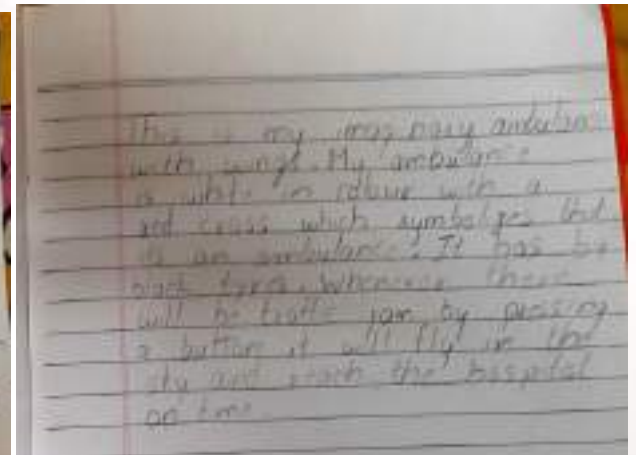 This is my imaginary ambulance
with wings. My ambulance
is white in colour with a
red cross which symbolizes that
its an ambulance. It has
black tyres. Whenever there
will be traffic jam by pressing
a button it will fly in the
sky and reach the hospital
on time.